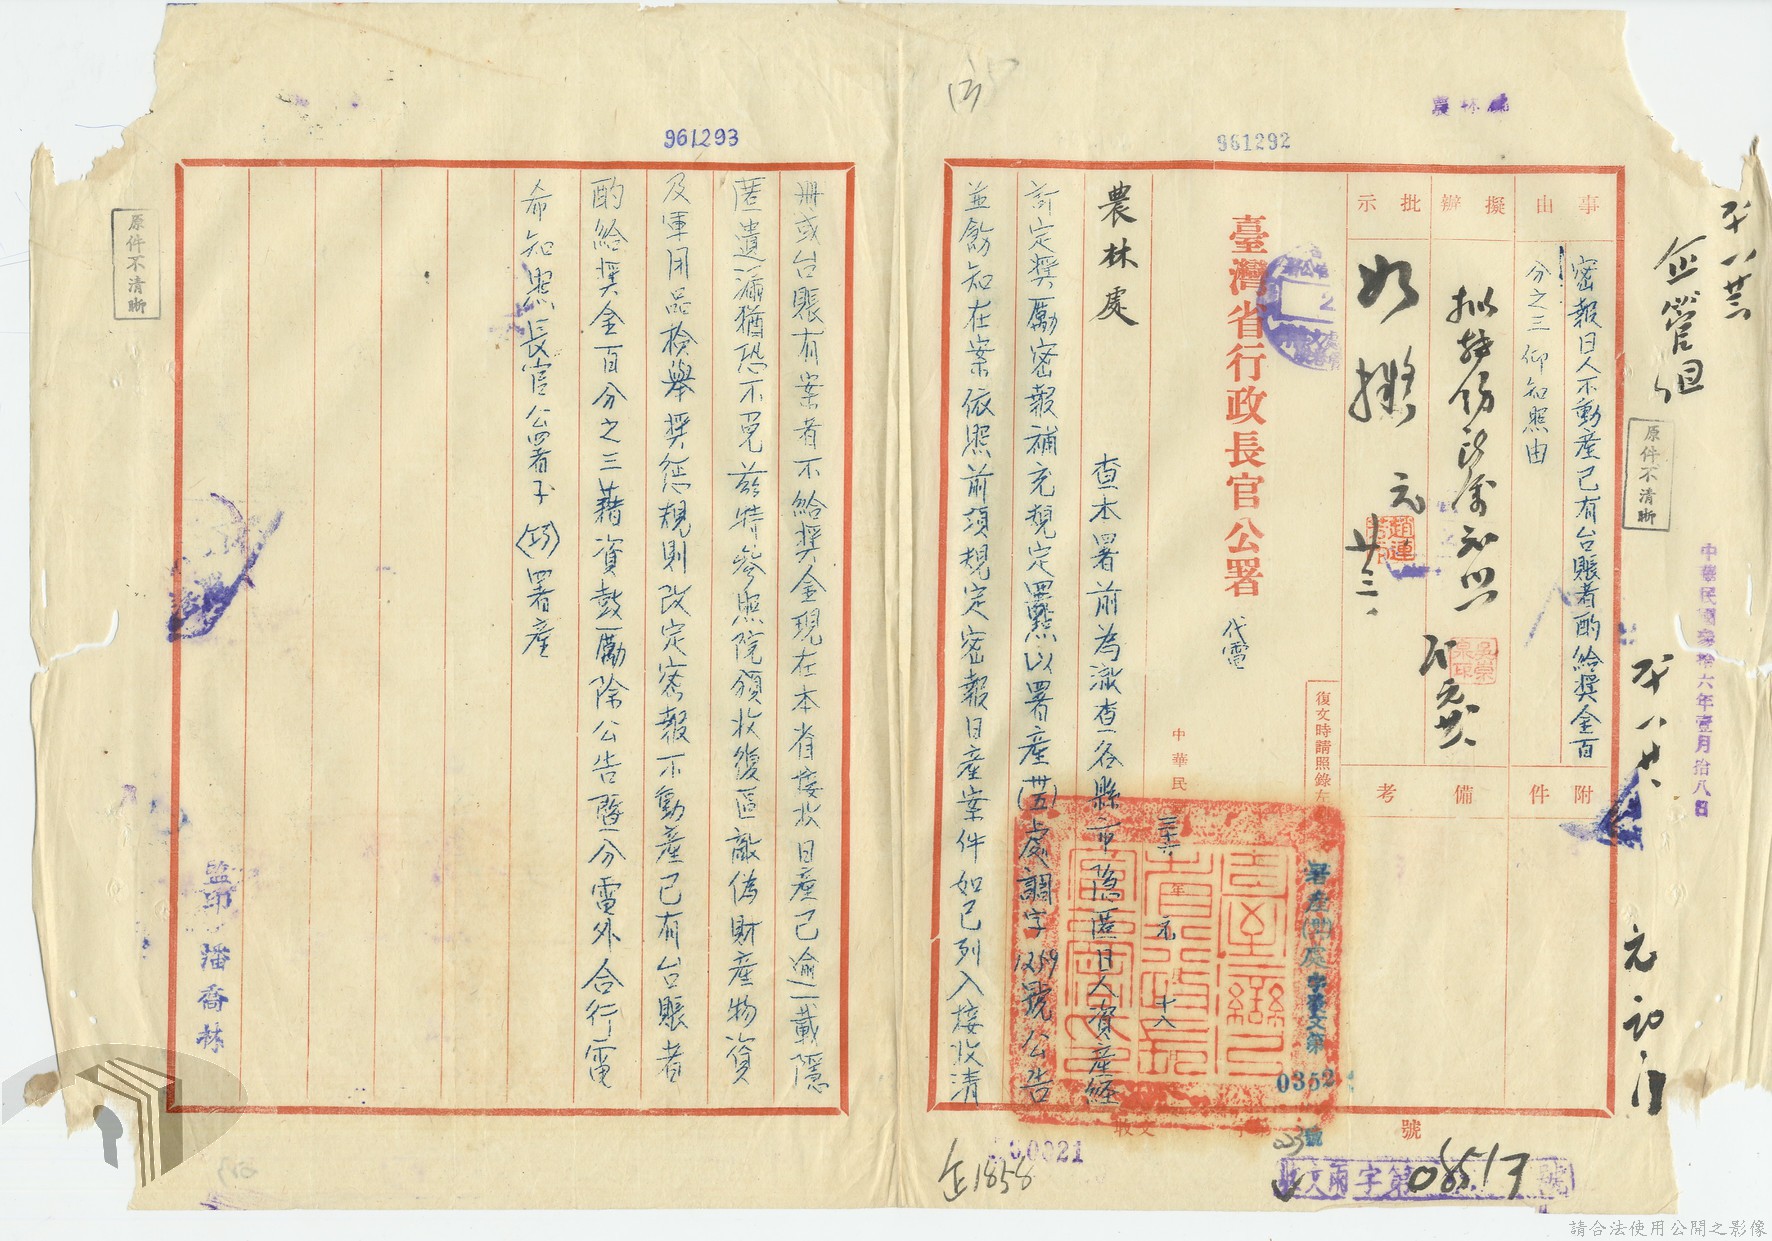 961292
961293
農林處
事由
擬辦
批示
密報日人不動產已有台賬者酌給獎金百
分之三仰知照由
如擬
元
廿三
附件
備考
企管組
原件不清晰
中華民國叁拾六年壹月拾八日
臺灣省行政長官公署
代電
復文時請照錄左
中華民
三十六年元
十八
署產
處
字第
0352
號
農林處
查本署前為澈查各縣市隱匿日人資產經
訂定獎勵密報補充規定四點以署產(卅五)處調字1259號公告
並飭知在案依照前頒規定密報日產案件如已列入接收清
冊或台賬有案者不給獎金現在本省接收日產已逾一載隱
匿遺漏猶恐不免茲特參照院頒收復區敵偽財產物資
及軍用品檢舉獎懲規則改定密報不動產已有台賬者
酌給獎金百分之三藉資鼓勵除公告暨分電外合行電
希知照長官公署子(巧)署產
監印 潘喬林
原件不清晰
收文
號
00021
企1858
收文兩字第08517號
請合法使用公開之影像